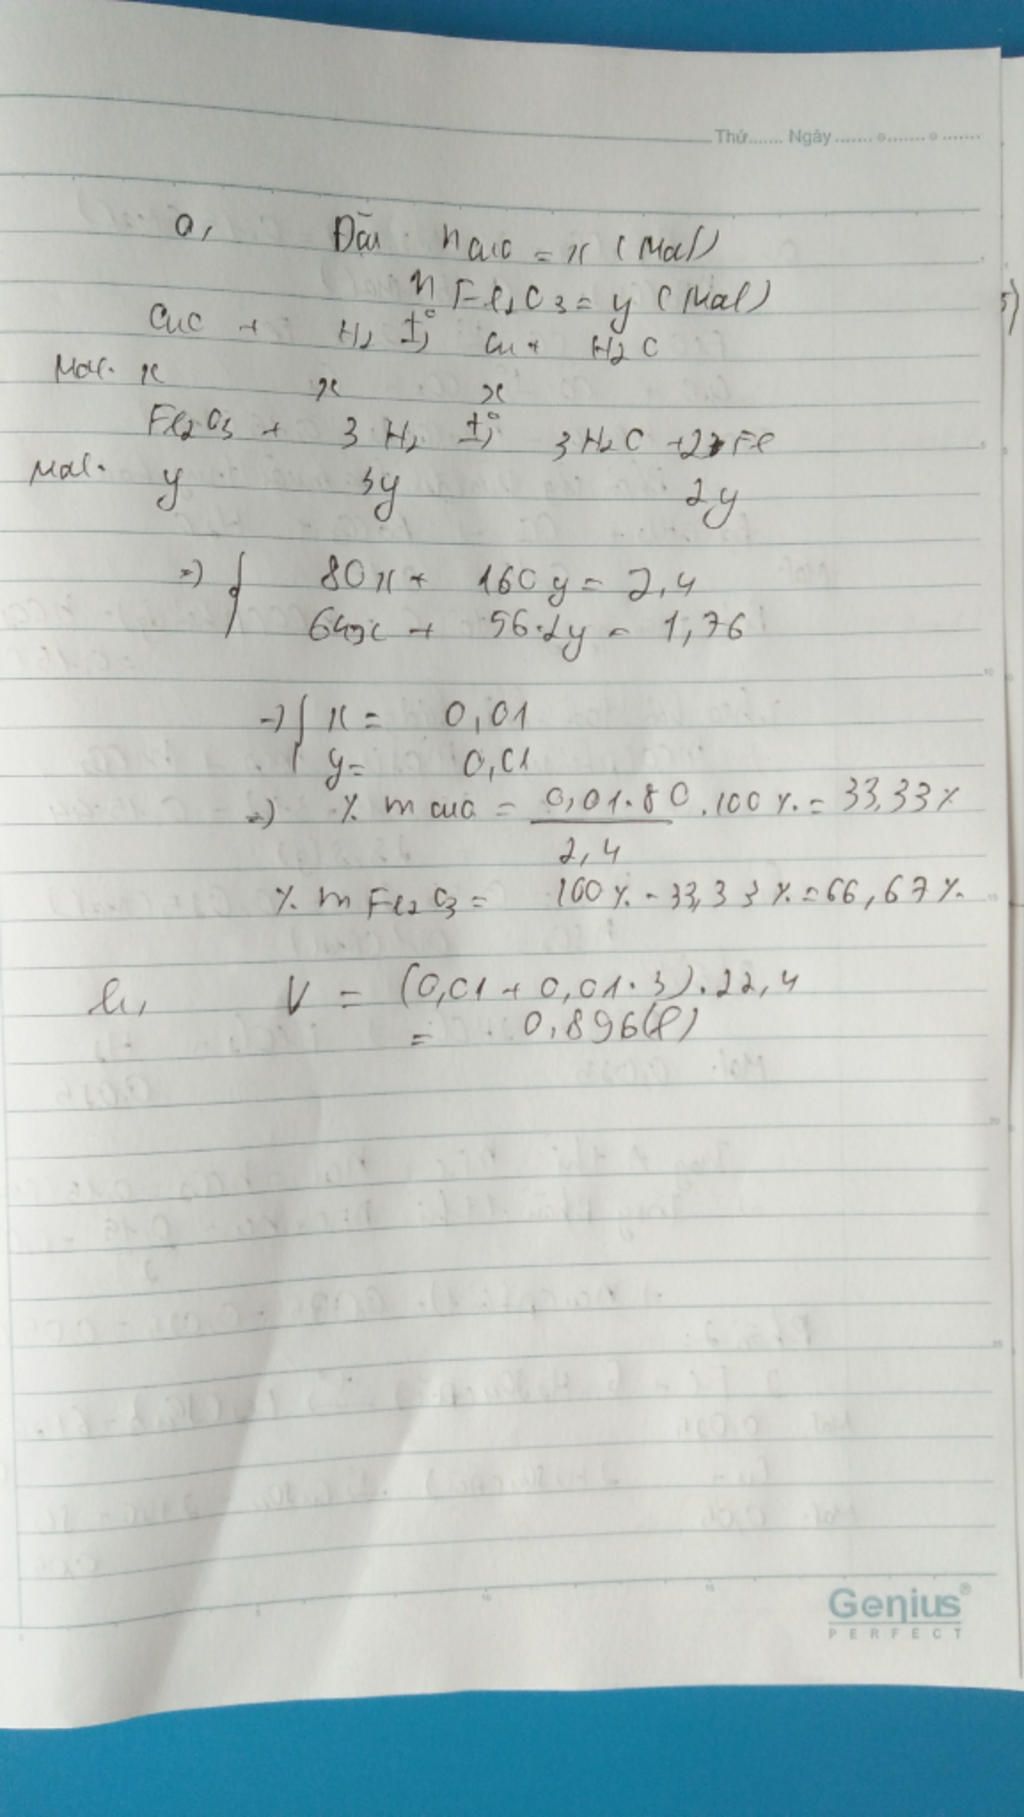 Thứ....... Ngày ....... o ....... o .......
a, Đặt nCuO = x (mol)
nFe2O3 = y (mol)
CuO + H2 t°→ Cu + H2O
Mol: x x x
Fe2O3 + 3H2 t°→ 3H2O + 2Fe
Mol: y 3y 2y
=> { 80x + 160y = 2,4
64x + 56.2y = 1,76
=> { x = 0,01
y = 0,01
=> % mCuO = 0,01.80 / 2,4 .100% = 33,33%
% mFe2O3 = 100% - 33,33% = 66,67%
b, V = (0,01 + 0,01.3).22,4
= 0,896(l)
Genius®
PERFECT